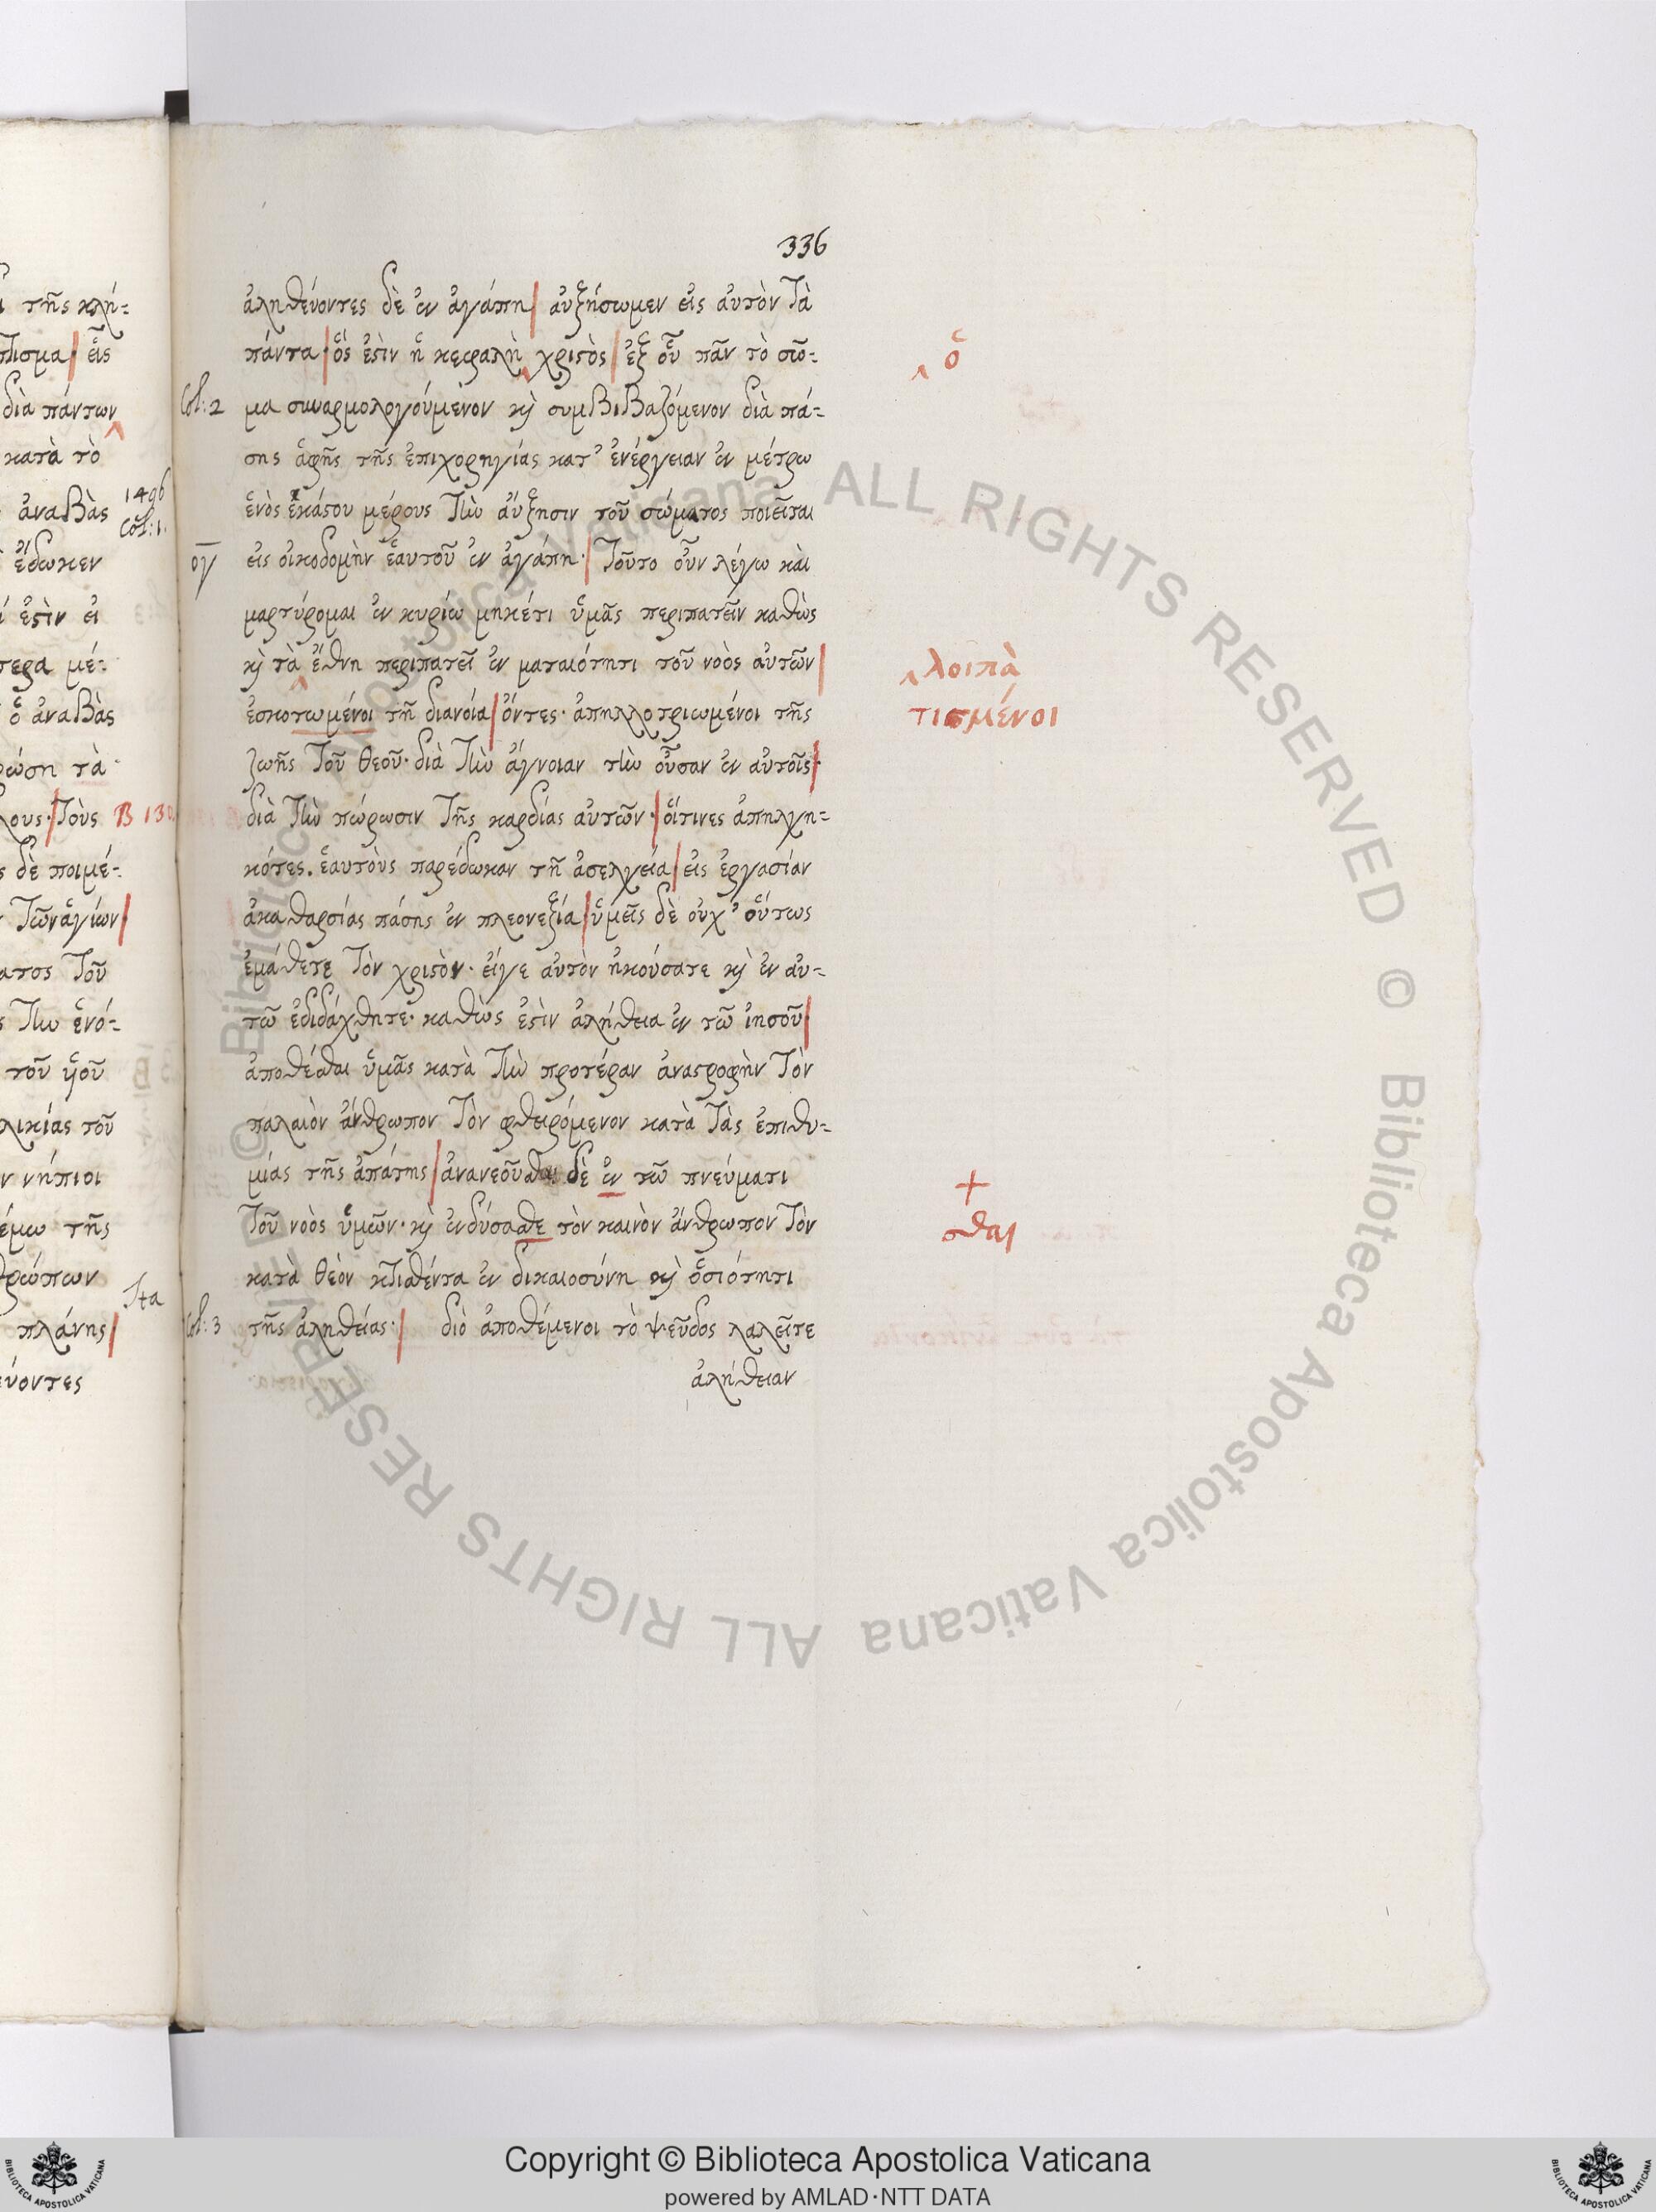 336
ἀληθεύοντες δὲ ἐν ἀγάπη αὐξήσωμεν εἰς αὐτὸν τὰ
πάντα· ὅς ἐστὶν ἡ κεφαλὴ χριστὸς ἐξ οὗ πᾶν τὸ σῶ-
‸ ὁ
Col: 2 μα συναρμολογούμενον καὶ συμβιβαζόμενον διὰ πά-
σης ἁφῆς τῆς ἐπιχορηγίας κατ' ἐνέργειαν ἐν μέτρω
ἑνὸς ἑκάστου μέρους τὴν αὔξησιν τοῦ σώματος ποιεῖται
ογ εἰς οἰκοδομὴν ἑαυτοῦ ἐν ἀγάπη· Τοῦτο οὖν λέγω καὶ
μαρτύρομαι ἐν κυρίω μηκέτι ὑμᾶς περιπατεῖν καθὼς
καὶ τὰ ἔθνη περιπατεῖ ἐν ματαιότητι τοῦ νοὸς αὐτῶν
‸ λοιπὰ
ἐσκοτωμένοι τῆ διανοία ὄντες· ἀπηλλοτριωμένοι τῆς
τισμένοι
ζωῆς τοῦ θεοῦ· διὰ τὴν ἄγνοιαν τὴν οὖσαν ἐν αὐτοῖς·
διὰ τὴν πώρωσιν τῆς καρδίας αὐτῶν· οἵτινες ἀπηλγη-
κότες. ἑαυτοὺς παρέδωκαν τῆ ἀσελγεία εἰς ἐργασίαν
ἀκαθαρσίας πάσης ἐν πλεονεξία ὑμεῖς δὲ οὐχ' οὕτως
ἐμάθετε τὸν χριστὸν· εἴγε αὐτὸν ἠκούσατε καὶ ἐν αὐ-
τῶ ἐδιδάχθητε· καθὼς ἐστὶν ἀλήθεια ἐν τῶ ἰησοῦ
ἀποθέσθαι ὑμᾶς κατὰ τὴν προτέραν ἀναστροφὴν τὸν
παλαιὸν ἄνθρωπον τὸν φθειρόμενον κατὰ τὰς ἐπιθυ-
μίας τῆς ἀπάτης ἀνανεοῦσθαι δὲ ἐν τῶ πνεύματι
+
τοῦ νοὸς ὑμῶν· καὶ ἐνδύσασθε τὸν καινὸν ἄνθρωπον τὸν
σθαι
κατὰ θεὸν κτισθέντα ἐν δικαιοσύνη καὶ ὁσιότητι
Col: 3 τῆς ἀληθείας· διὸ ἀποθέμενοι τὸ ψεῦδος λαλεῖτε
ἀλήθειαν
τῆς κλή-
εἷς
διὰ πάντων
κατὰ τὸ
ἀναβὰς
1496
Col: 1.
ἔδωκεν
ἐστὶν εἰ
μέ-
ὁ ἀναβὰς
τὰ
τοὺς
δὲ ποιμέ-
τῶν ἁγίων
τοῦ
τὴν ἑνό-
τοῦ υἱοῦ
τοῦ
νήπιοι
τῆς
πλάνης
Copyright © Biblioteca Apostolica Vaticana
powered by AMLAD·NTT DATA
BIBLIOTECA APOSTOLICA VATICANA
BIBLIOTECA APOSTOLICA VATICANA
© Biblioteca Apostolica Vaticana ALL RIGHTS RESERVED © Biblioteca Apostolica Vaticana ALL RIGHTS RESERVED